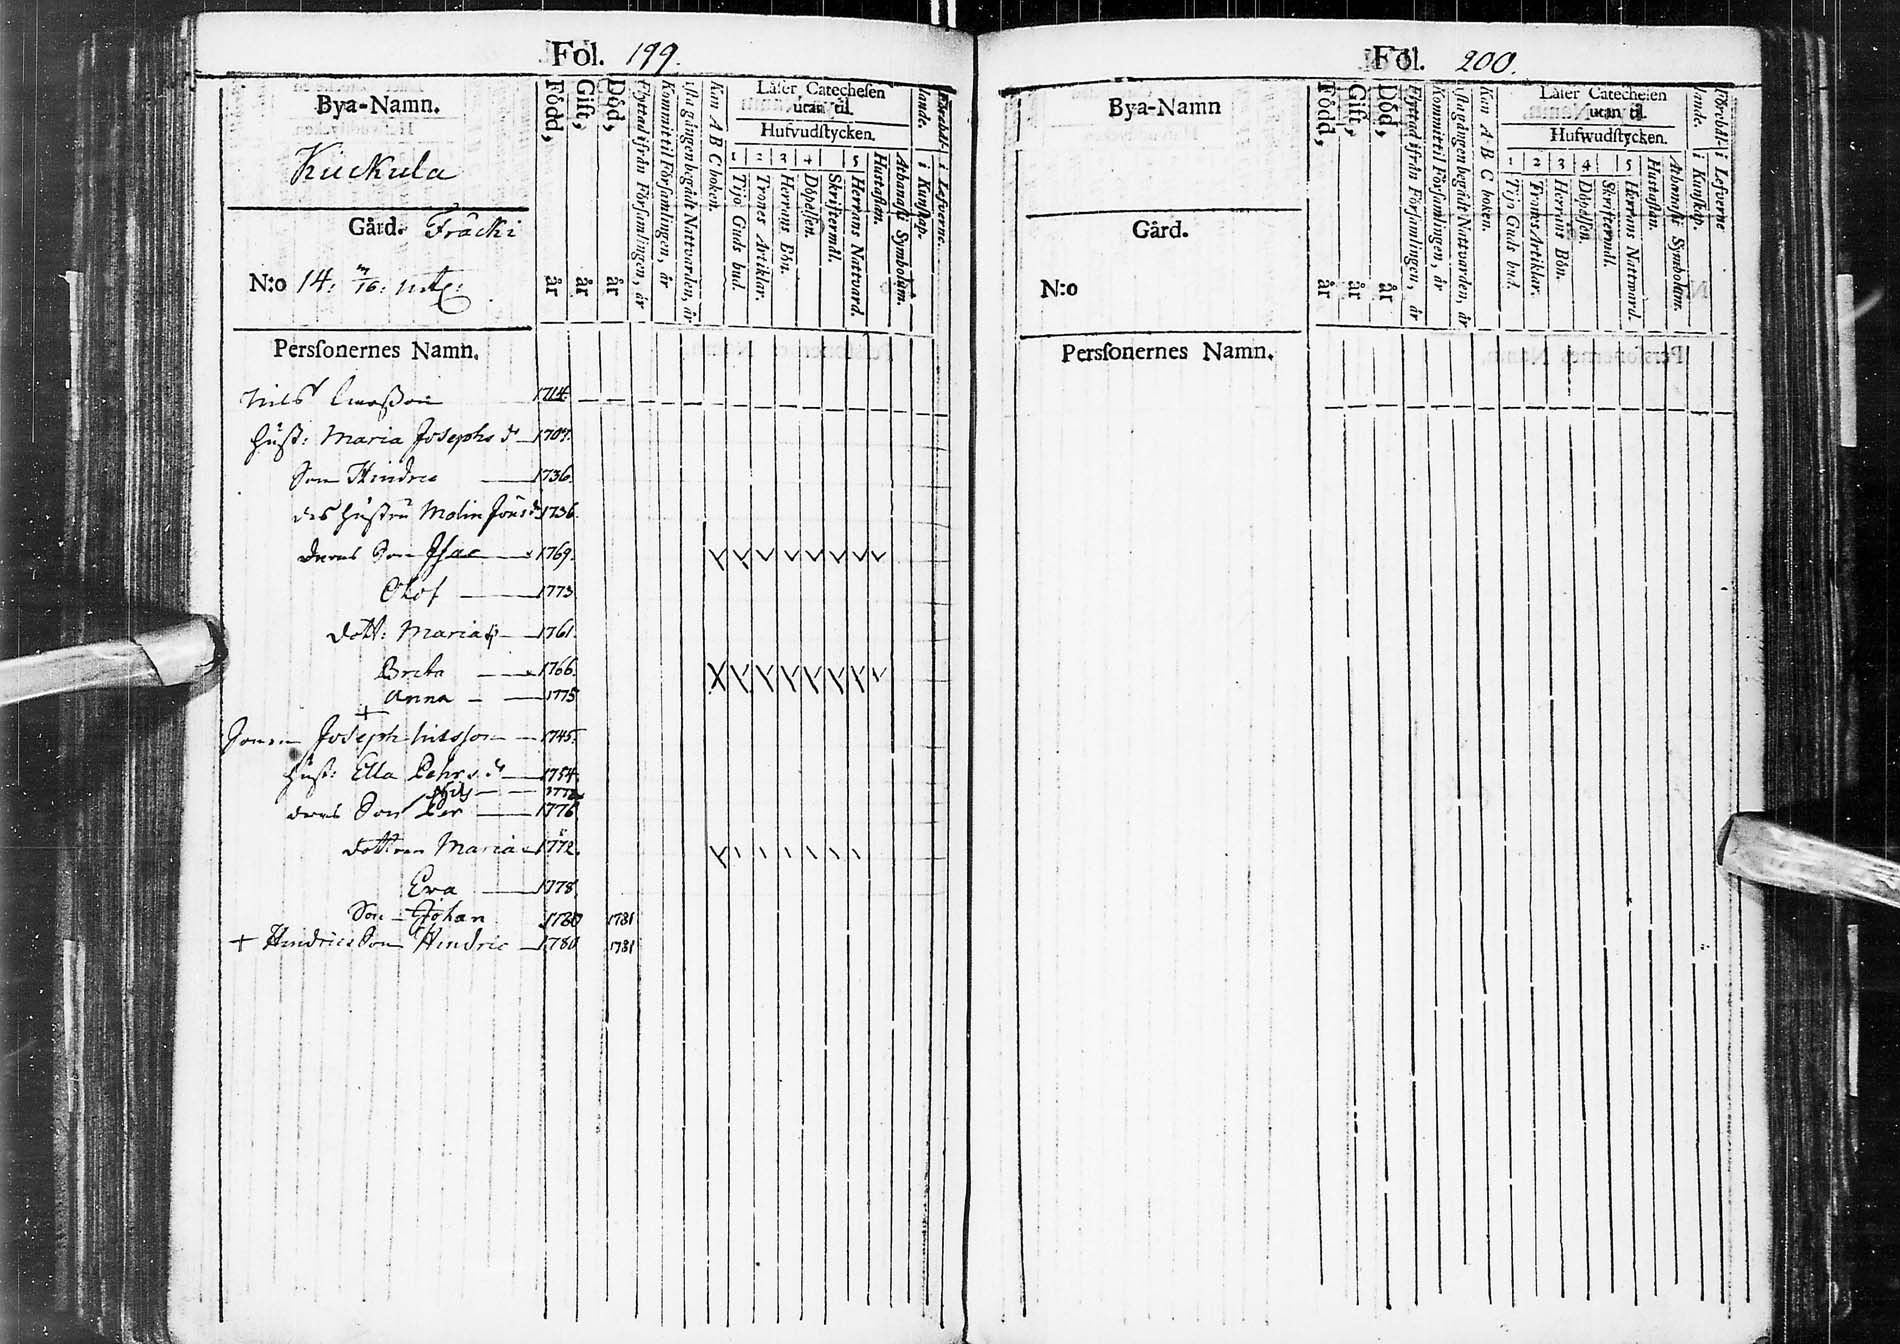 Fol. 199.
Bya-Namn.
Kuckula
Gård. Fräcki
N:o 14.
Född, år
Gift, år
Död, år
Flyttad ifrån Församlingen, år
Kommit til Församlingen, år
1sta gången begådt Nattvarden, år
Kan A B C boken.
Läser Catechesen
utan til.
Hufvudstycken.
1 2 3 4 5
Tijo Guds bud.
Trones Artiklar.
Herrans Bön.
Döpelsen.
Skriftermål.
Herrans Nattvard.
Hustaflan.
Athanasii Symbolum.
i Kunskap.
i Lefverne.
Personernes Namn.
Nils 1714
Hust: Maria Josephs d 1707.
Son Hindric 1736.
des Hustru Malin Jöns d 1736.
deras Son Isac 1769.
Olof 1773
dott: Maria 1761.
Breta 1766.
Anna 1775
Joseph Nilsson 1745.
Hust: Ella Pehrs d 1754.
Nils 1772
deras Son Per 1776
dottren Maria 1772.
Eva 1778.
Son Johan 1780 1781
+ Hindrics Son Hindric 1780 1781
Fol. 200.
Bya-Namn
Gård.
N:o
Född, år
Gift, år
Död, år
Flyttad ifrån Församlingen, år
Kommit til Församlingen, år
1sta gången begådt Nattvarden, år
Kan A B C boken.
Läser Catechesen
utan til.
Hufwudstycken.
1 2 3 4 5
Tijo Guds bud.
Trones Artiklar.
Herrans Bön.
Döpelsen
Skriftermål.
Herrans Nattvard.
Hustaflan.
Athanasii Symbolum.
i Kunskap.
i Lefverne
Personernes Namn.